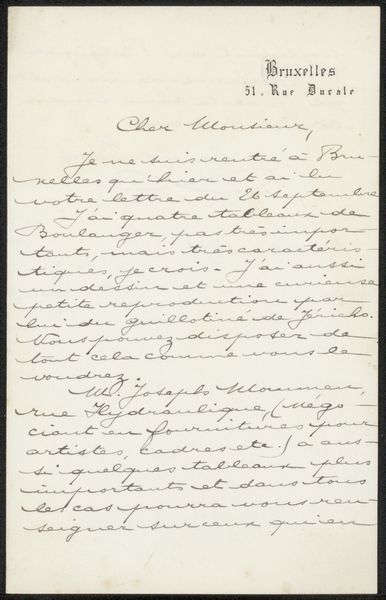 Bruxelles
51, Rue Ducale
Cher Monsieur,
Je ne suis rentré à Bru-
xelles qu'hier et ai lu
votre lettre du 26 septembre
J'ai quatre tableaux de
Boulanger, pas très impor-
tants, mais très caractéris-
tiques, je crois. J'ai aussi
un dessin et une curieuse
petite reproduction par
lui du guillotiné de Jéricho.
Vous pouvez disposer de
tout cela comme vous le
voudrez.
M. Joseph Mommen,
rue Hydraulique, (négo-
ciant en fournitures pour
artistes, cadres etc.) a aus-
si quelques tableaux plus
importants et dans tous
les cas pourra vous ren-
seigner sur ceux qui en